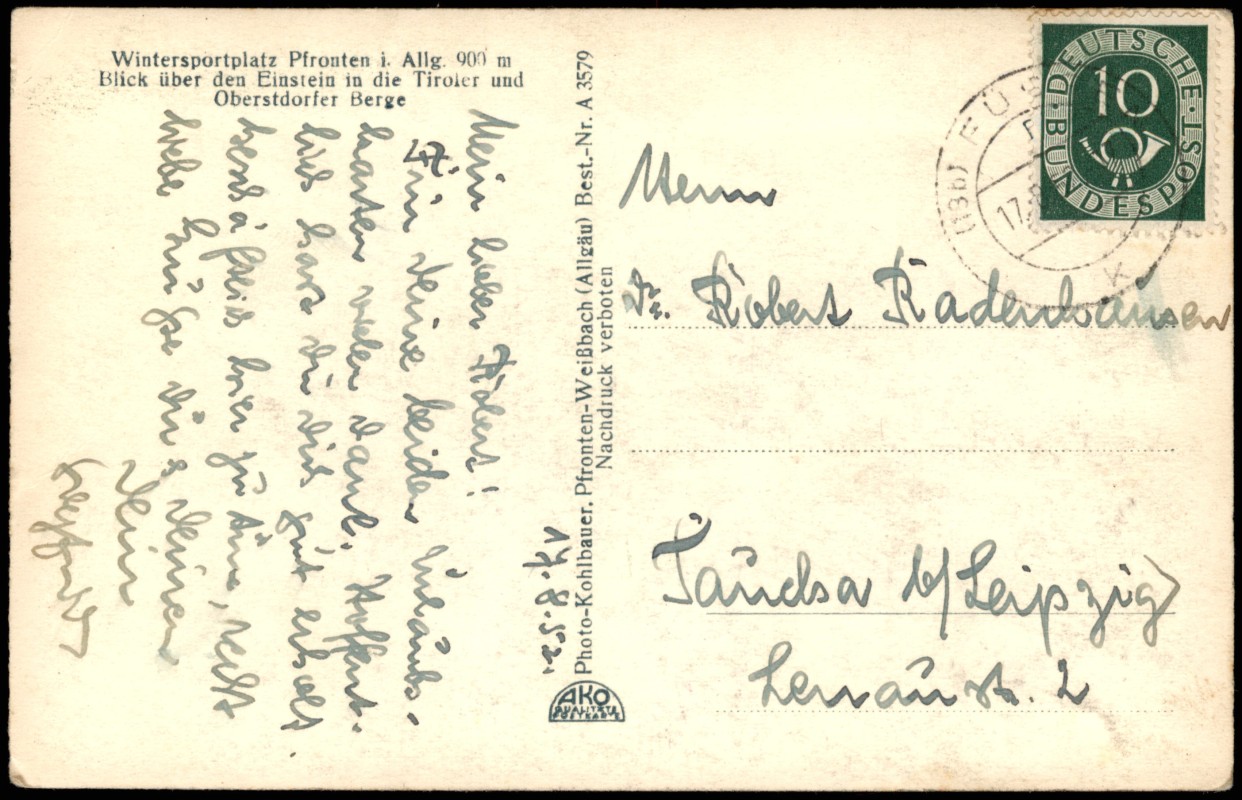 Wintersportplatz Pfronten i. Allg. 900 m
Blick über den Einstein in die Tiroler und
Oberstdorfer Berge
17.8.52.
Mein lieber Robert!
Für deine beiden Urlaubs-
karten vielen Dank. Hoffent-
lich hast du dich gut erholt.
hier zu tun,
liebe Grüße dir & deinen
Dein
Photo-Kohlbauer, Pfronten-Weißbach (Allgäu) Best.-Nr. A 3579
Nachdruck verboten
AKO
QUALITÄTS
POSTKARTE
DEUTSCHE BUNDESPOST
10
(13b) FÜ
17.
Herrn
Dr. Robert Radenhausen
Taucha b/Leipzig
Lenaustr. 2